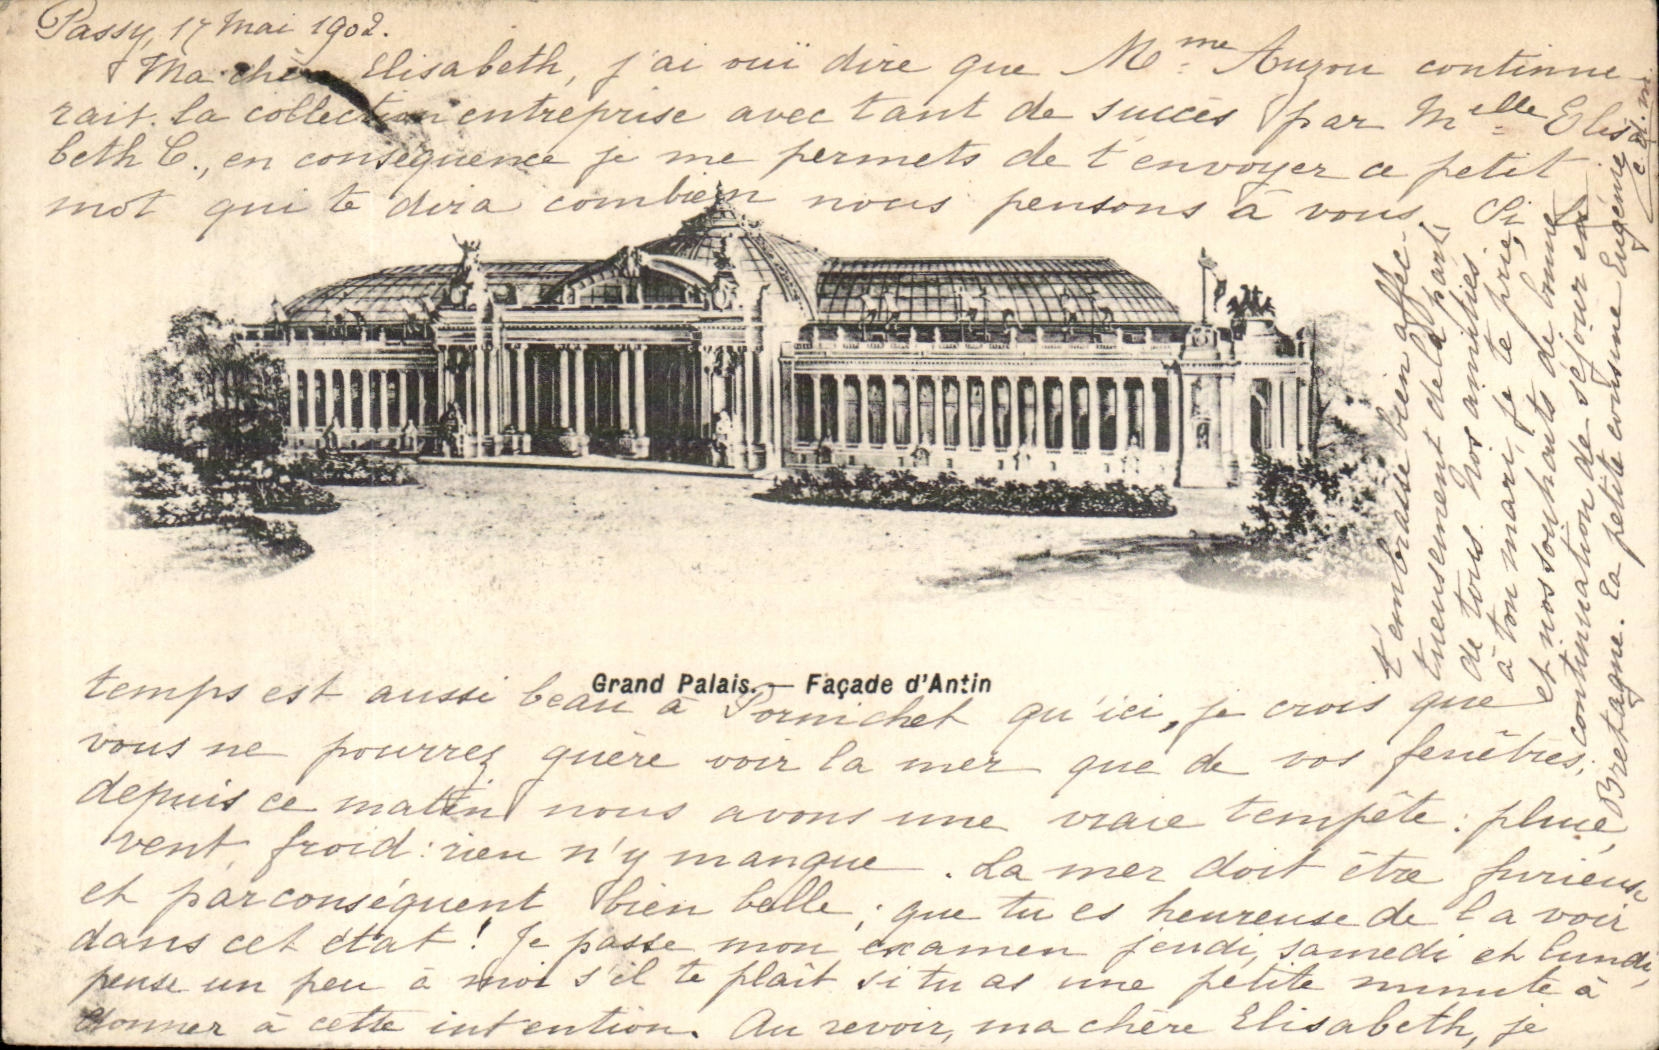 Passy, 17 Mai 1902.
Ma chère Elisabeth, j'ai ouï dire que Mme Auzou continue-
rait la collection entreprise avec tant de succès par Melle Elisa
beth C., en conséquence je me permets de t'envoyer ce petit
mot qui te dira combien nous pensons à vous. Si le
Grand Palais. — Façade d'Antin
temps est aussi beau à Pornichet qu'ici, je crois que
vous ne pourrez guère voir la mer que de vos fenêtres;
depuis ce matin nous avons une vraie tempête: pluie,
vent, froid: rien n'y manque. La mer doit être furieuse
et par conséquent bien belle; que tu es heureuse de la voir
dans cet état! Je passe mon examen jeudi, samedi et lundi,
pense un peu à moi s'il te plaît si tu as une petite minute à
donner à cette intention. Au revoir, ma chère Elisabeth, je
t'embrasse bien affec-
tueusement de la part
de tous. Nos amitiés
à ton mari, je te prie,
et nos souhaits de bonne
continuation de séjour en
Bretagne. La petite cousine Eugénie